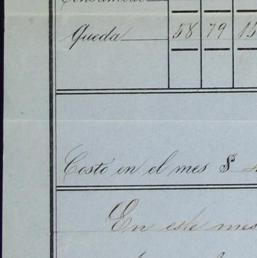 Queda 58 79 15
Costo en el mes $
En este mes